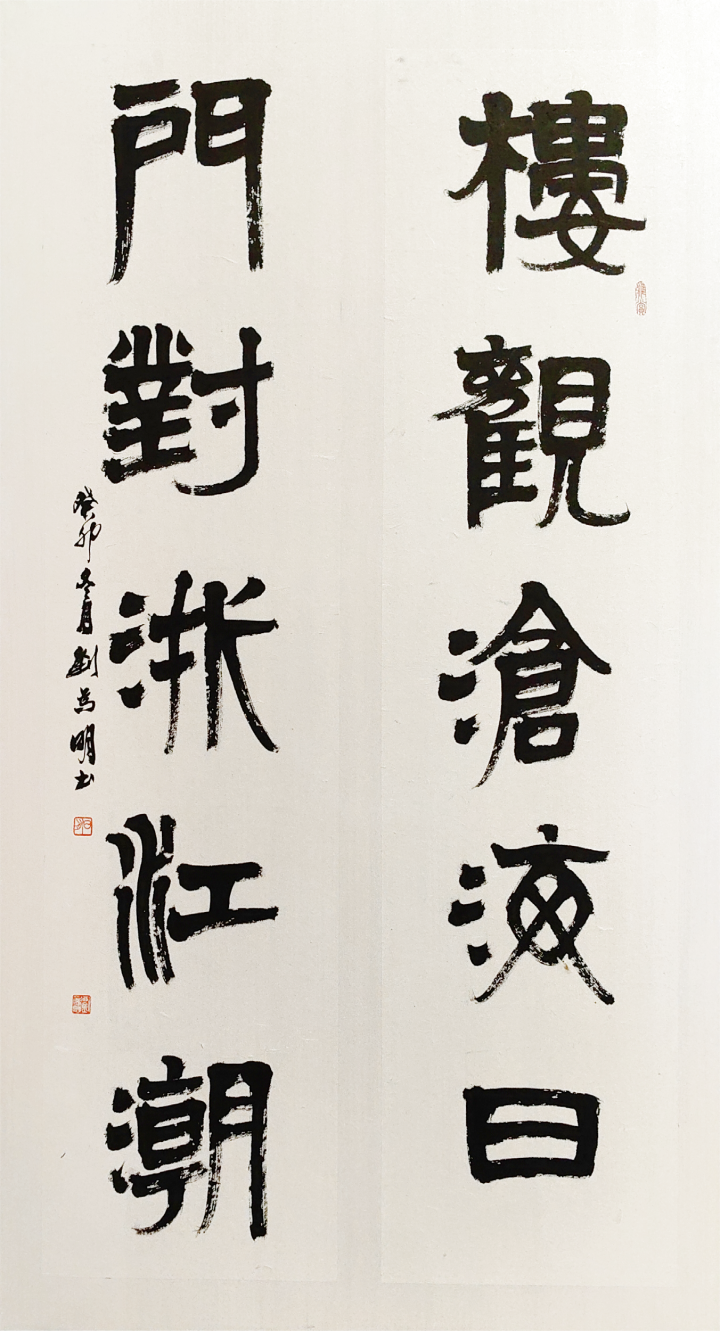 樓觀滄海日
門對浙江潮
癸卯冬月劉為明書